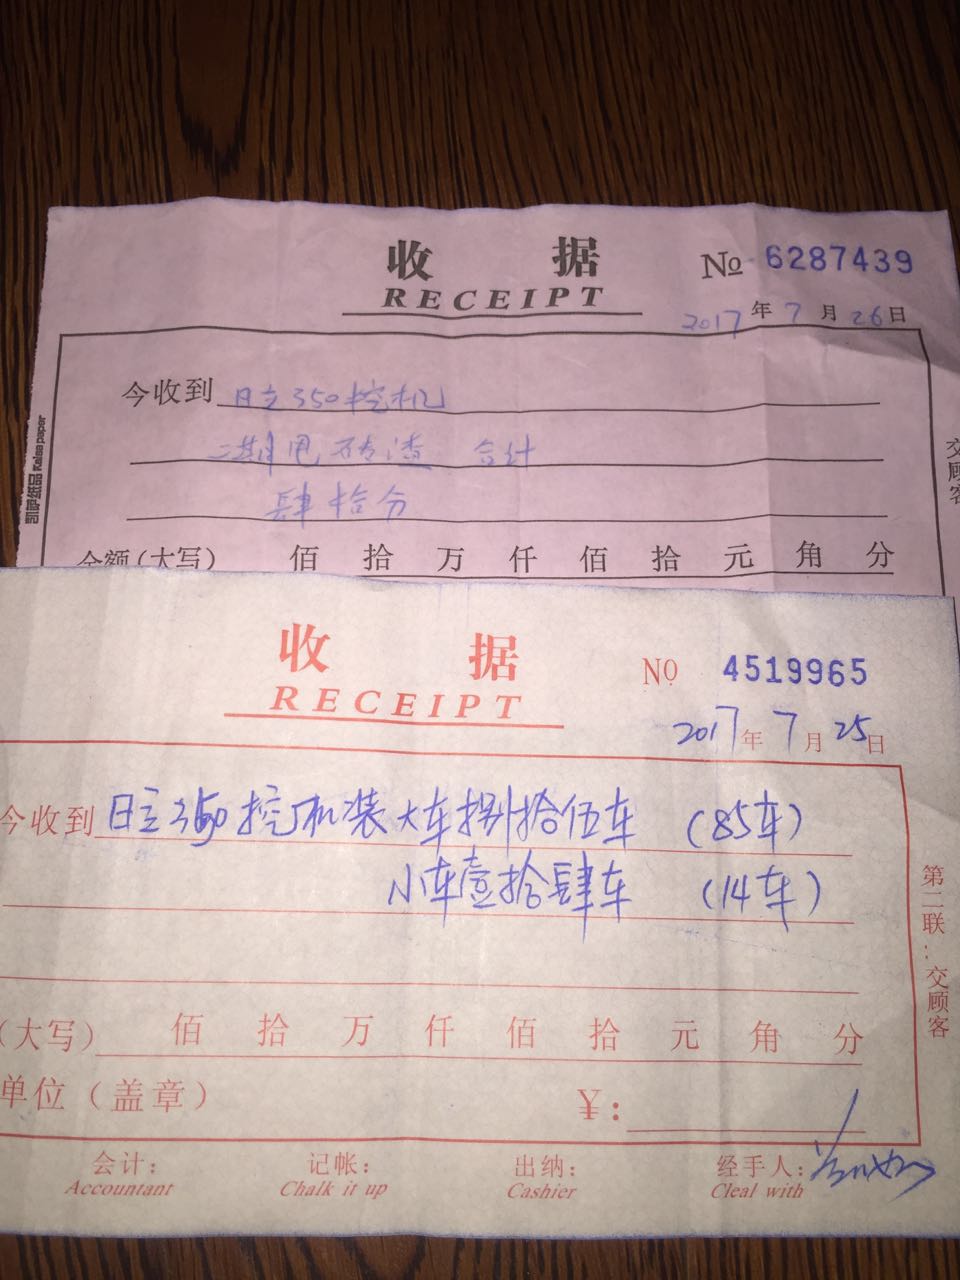 收 据
RECEIPT
No 6287439
2017年7月26日
今收到 日立350挖机
二期甩砖渣 合计
肆拾分
金额(大写) 佰 拾 万 仟 佰 拾 元 角 分
凯萨纸品 Kaisa paper
交顾客
收 据
RECEIPT
No 4519965
2017年7月25日
今收到 日立350挖机装大车捌拾伍车 (85车)
小车壹拾肆车 (14车)
(大写) 佰 拾 万 仟 佰 拾 元 角 分
单位(盖章) ¥:
第二联:交顾客
会计: 记帐: 出纳: 经手人:
Accountant Chalk it up Cashier Cleal with